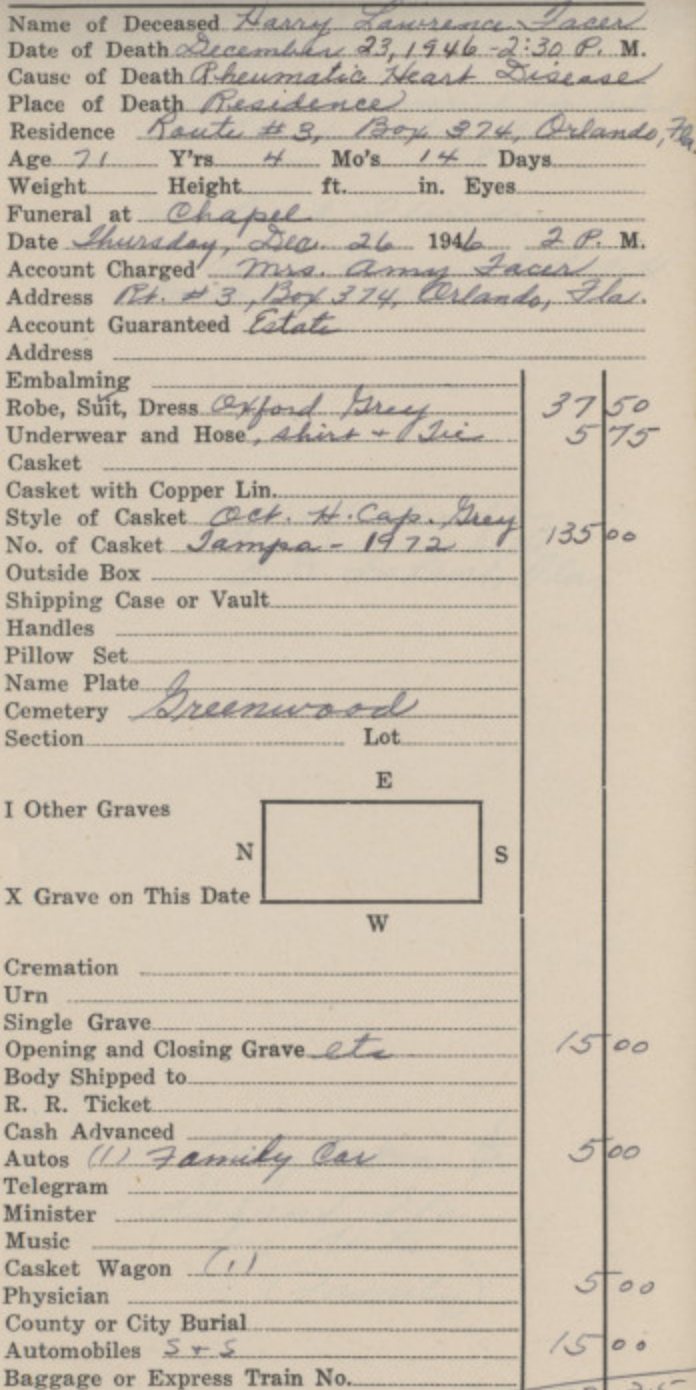 Name of Deceased Harry Lawrence Facer
Date of Death December 23, 1946 - 2:30 P. M.
Cause of Death Rheumatic Heart Disease
Place of Death Residence
Residence Route #3, Box 374, Orlando, Fla.
Age 71 Y'rs 4 Mo's 14 Days
Weight Height ft. in. Eyes
Funeral at Chapel
Date Thursday, Dec. 26 1946 2 P. M.
Account Charged Mrs. Amy Facer
Address Rt. #3, Box 374, Orlando, Fla.
Account Guaranteed Estate
Address
Embalming
Robe, Suit, Dress Oxford Grey 37 50
Underwear and Hose, shirt + Tie 5 75
Casket
Casket with Copper Lin.
Style of Casket Oct. H. Cap. Grey
No. of Casket Tampa - 1972 135 00
Outside Box
Shipping Case or Vault
Handles
Pillow Set
Name Plate
Cemetery Greenwood
Section Lot
E
I Other Graves
N S
X Grave on This Date
W
Cremation
Urn
Single Grave
Opening and Closing Grave etc 15 00
Body Shipped to
R. R. Ticket
Cash Advanced
Autos (1) Family Car 5 00
Telegram
Minister
Music
Casket Wagon (1)
Physician 5 00
County or City Burial
Automobiles S + S 15 00
Baggage or Express Train No.